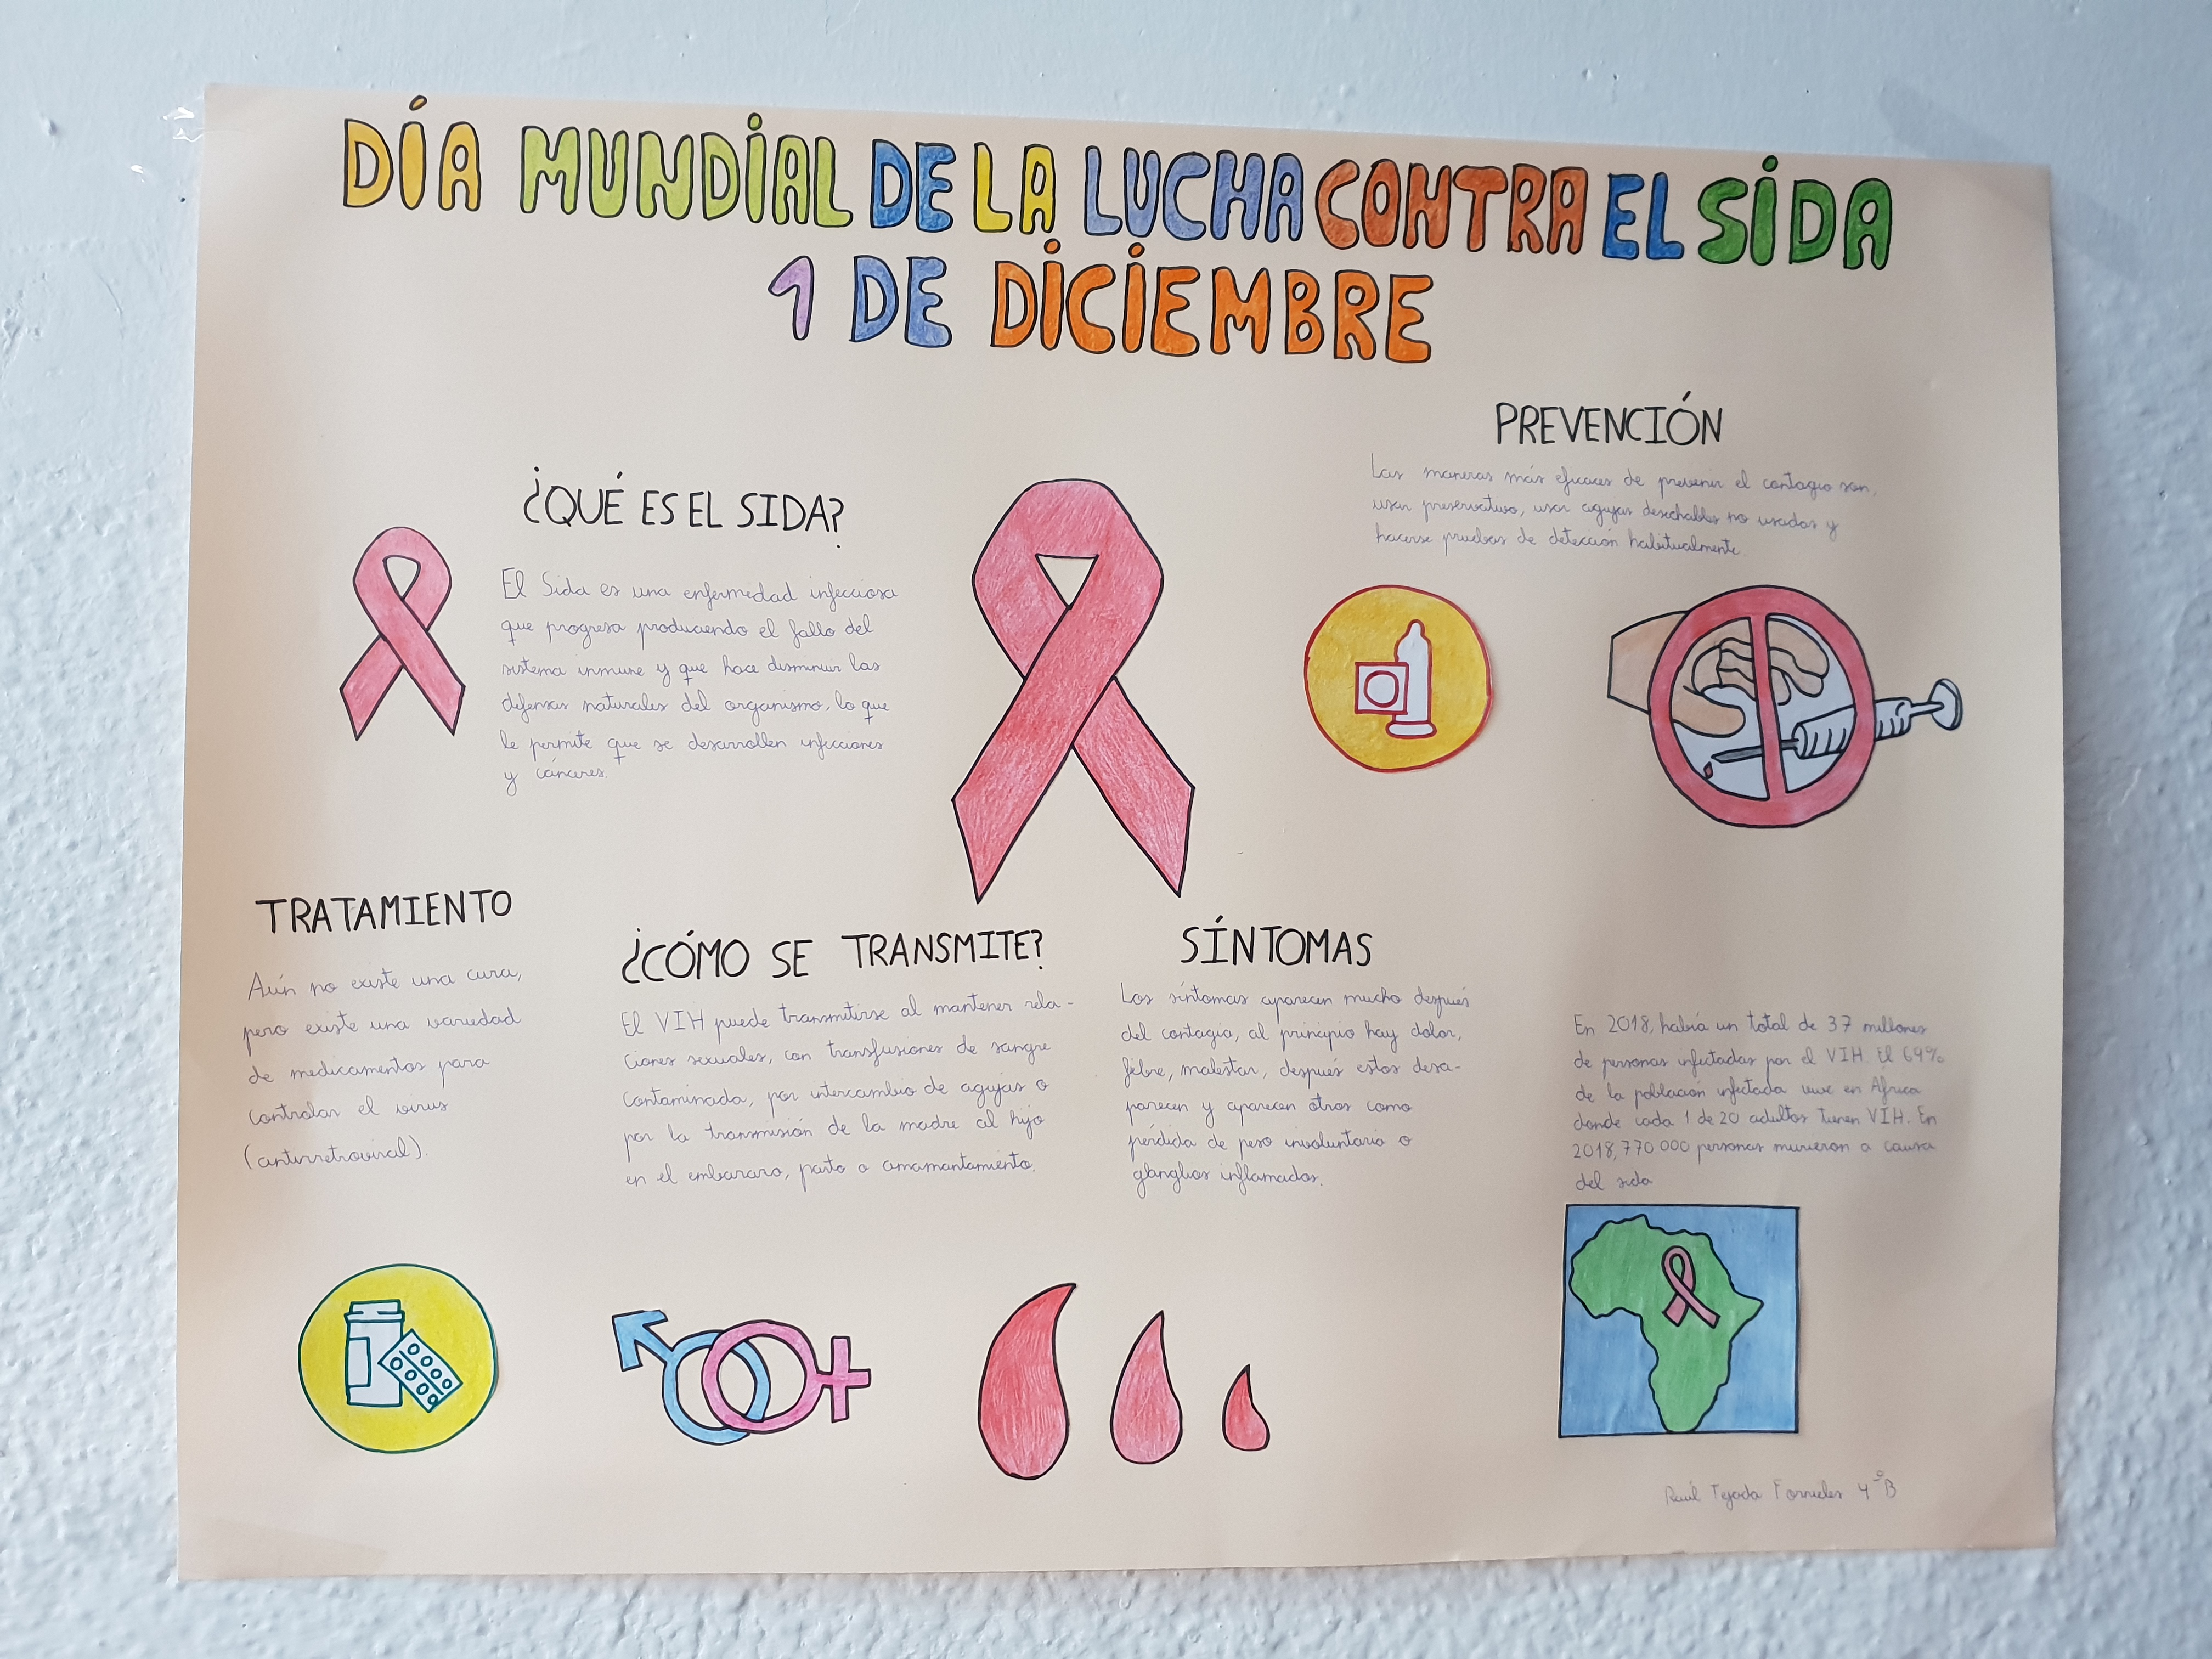 DÍA MUNDIAL DE LA LUCHA CONTRA EL SIDA
1 DE DICIEMBRE
¿QUÉ ES EL SIDA?
El Sida es una enfermedad infecciosa
que progresa produciendo el fallo del
sistema inmune y que hace disminuir las
defensas naturales del organismo, lo que
le permite que se desarrollen infecciones
y cánceres.
PREVENCIÓN
Las maneras más eficaces de prevenir el contagio son,
usar preservativo, usar agujas desechables no usadas y
hacerse pruebas de detección habitualmente
TRATAMIENTO
Aún no existe una cura,
pero existe una variedad
de medicamentos para
controlar el virus
(antirretroviral).
¿CÓMO SE TRANSMITE?
El VIH puede transmitirse al mantener rela-
ciones sexuales, con transfusiones de sangre
contaminada, por intercambio de agujas o
por la transmisión de la madre al hijo
en el embarazo, parto o amamantamiento.
SÍNTOMAS
Los síntomas aparecen mucho después
del contagio, al principio hay dolor,
fiebre, malestar, después estos desa-
parecen y aparecen otros como
pérdida de peso involuntaria o
ganglios inflamados.
En 2018, había un total de 37 millones
de personas infectadas por el VIH. El 69%
de la población infectada vive en África
donde cada 1 de 20 adultos tienen VIH. En
2018, 770 000 personas murieron a causa
del sida
Raúl Tejada Fornieles 4º B